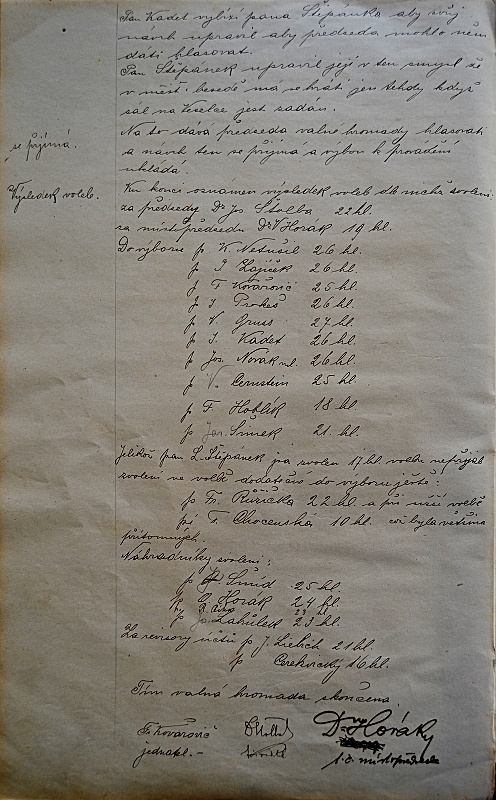 Pan Kadet vybízí pana Štěpánka aby svůj
návrh upravil aby předseda mohl o něm
dáti hlasovat.
Pan Štěpánek upravil jej v ten smysl že
v měšť. besedě má se hráti jen tehdy když
sál na Veselce jest zadán.
Na to dává předseda valné hromady hlasovati
se přijímá.
a návrh ten se přijímá a výbor k provádění
ukládá.
Výsledek voleb.
Ku konci oznámen výsledek voleb dle nichž zvoleni:
za předsedu Dr Jos. Štolba 22 hl.
za místopředsedu Dr V Horák 19 hl.
Do výboru p K. Netušil 26 hl.
p J Zajíček 26 hl.
p F Kovařovič 25 hl.
p J Prokeš 26 hl.
p V. Gruss 27 hl.
p J. Kadet 26 hl.
p Jos. Novák ml. 26 hl.
p V. Bernstein 25 hl.
p F. Hoblík 18 hl.
p Jar. Šimek 21. hl.
Jelikož pan L. Štěpánek jsa zvolen 17 hl. volbu nepřijal
zvoleni ve volbě dodatečně do výboru ještě:
p Fr. Růžička 22 hl. a při užší volbě
pí F. Chocenská 10 hl. což byla většina
přítomných.
Náhradníky zvoleni:
p Šmíd 25 hl.
p C Horák 24 hl.
23 hl.
p Jos Zahůlek 23 hl.
Za revisory účtů p J. Liebich 21 hl.
p Cerekvický 16 hl.
Tím valná hromada skončena.
Fr Kovařovič
Dr Horák
jednatel. –
t. č. místopředseda